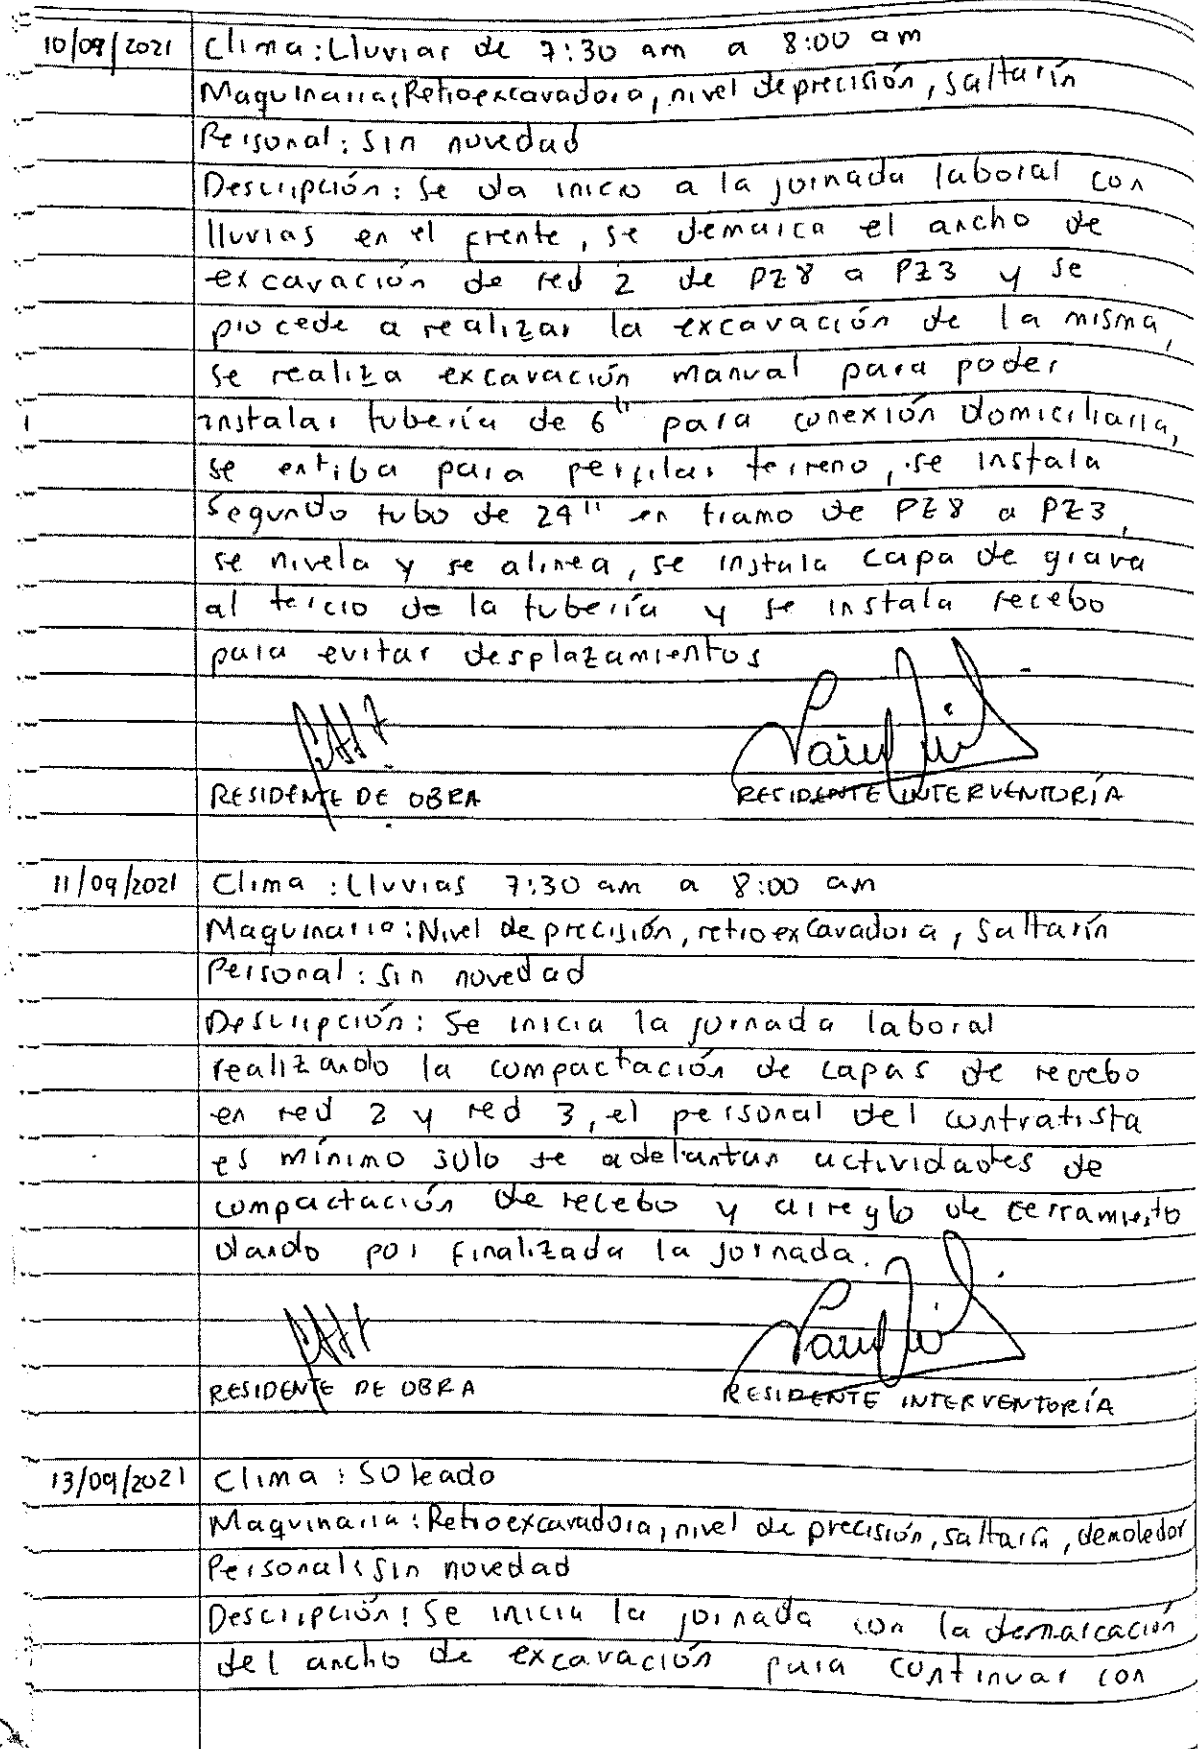 10/09/2021 Clima: Lluvias de 7:30 am a 8:00 am
Maquinaria: Retroexcavadora, nivel de precisión, saltarín
Personal: Sin novedad
Descripción: Se da inicio a la jornada laboral con
lluvias en el frente, se demarca el ancho de
excavación de red 2 de PZ8 a PZ3 y se
procede a realizar la excavación de la misma,
se realiza excavación manual para poder
instalar tubería de 6" para conexión domiciliaria,
se entiba para perfilar terreno, se instala
segundo tubo de 24" en tramo de PZ8 a PZ3,
se nivela y se alinea, se instala capa de grava
al tercio de la tubería y se instala recebo
para evitar desplazamientos
RESIDENTE DE OBRA RESIDENTE INTERVENTORÍA
11/09/2021 Clima: Lluvias 7:30 am a 8:00 am
Maquinaria: Nivel de precisión, retroexcavadora, saltarín
Personal: Sin novedad
Descripción: Se inicia la jornada laboral
realizando la compactación de capas de recebo
en red 2 y red 3, el personal del contratista
es mínimo sólo se adelantan actividades de
compactación de recebo y arreglo de cerramiento
dando por finalizada la jornada.
RESIDENTE DE OBRA RESIDENTE INTERVENTORÍA
13/09/2021 Clima: Soleado
Maquinaria: Retroexcavadora, nivel de precisión, saltarín, demoledor
Personal: Sin novedad
Descripción: Se inicia la jornada con la demarcación
del ancho de excavación para continuar con